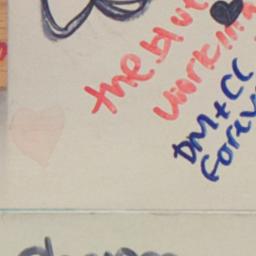 the blu
working
DM + CC
Forev